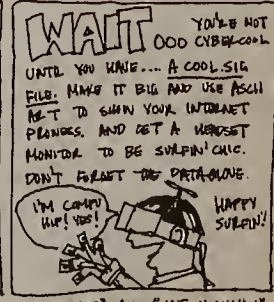 WAIT
YOU'RE NOT
000 CYBERCOOL
UNTIL YOU HAVE.... A COOL .SIG
FILE. MAKE IT BIG AND USE ASCII
ART TO SHOW YOUR INTERNET
PROWESS. AND GET A HEADSET
MONITOR TO BE SURFIN' CHIC.
DON'T FORGET THE DATA-GLOVE.
I'M COMPU
HIP! YES!
HAPPY
SURFIN'!